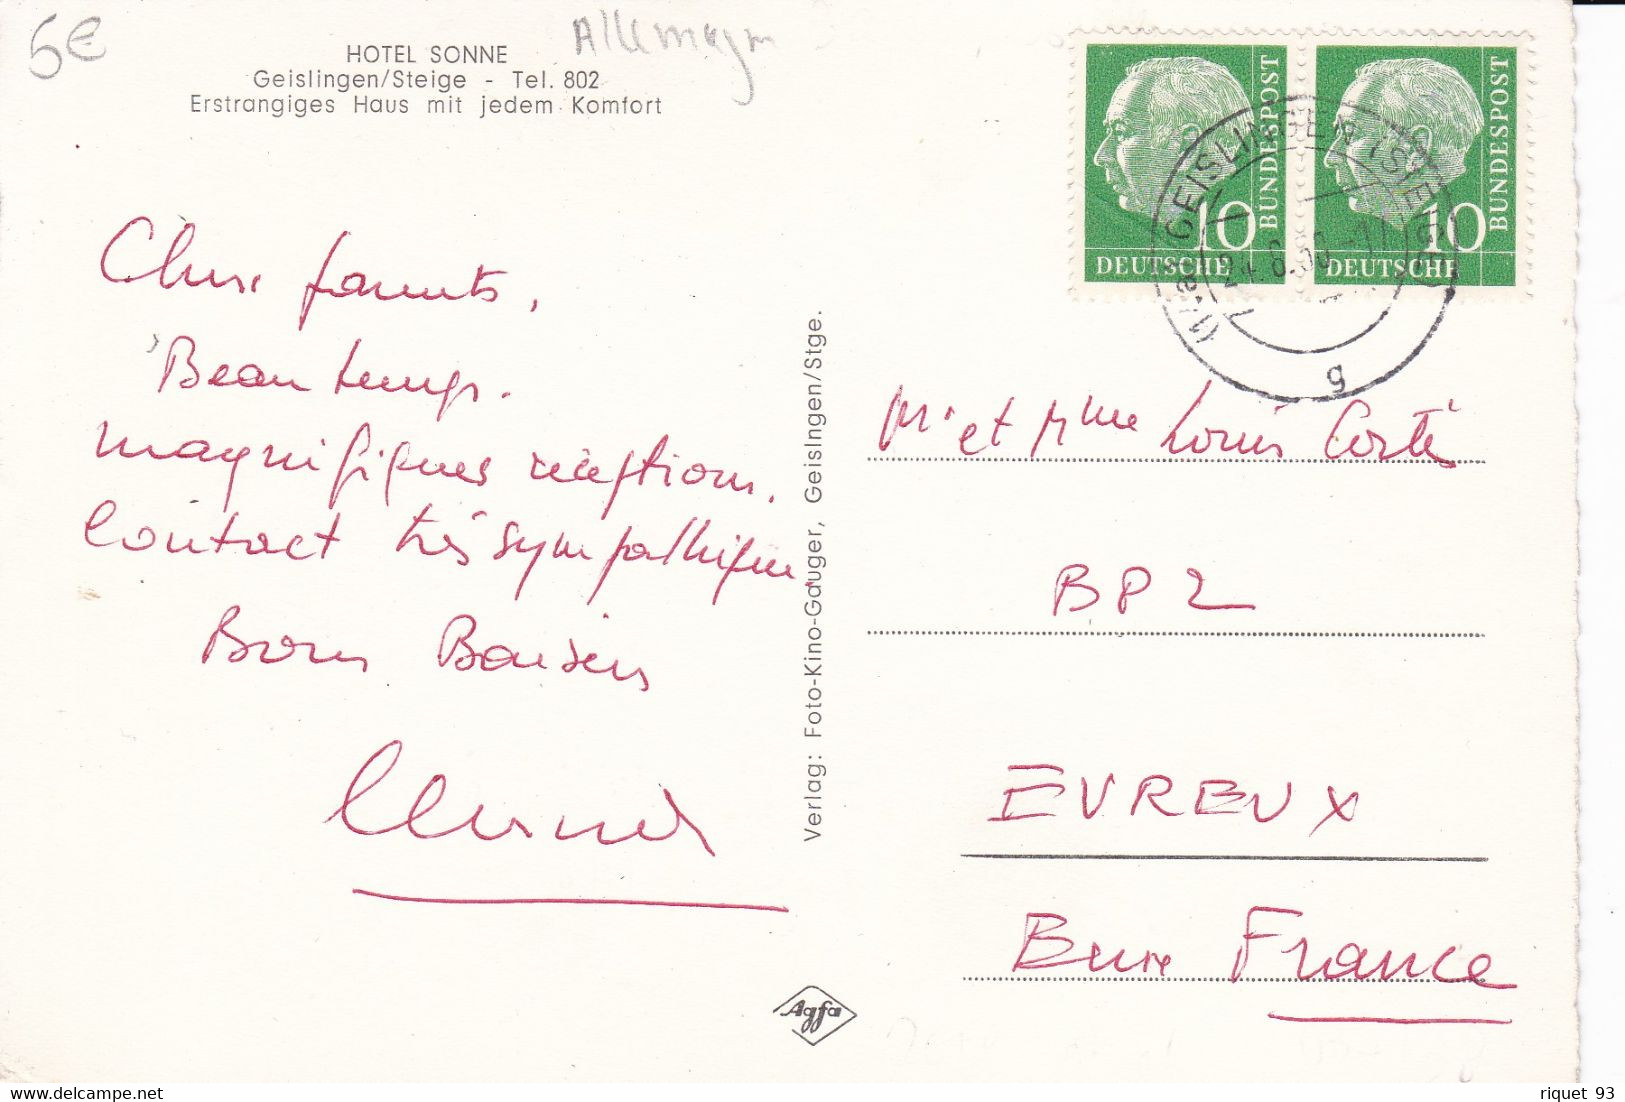 5€
Allemagn
HOTEL SONNE
Geislingen/Steige - Tel. 802
Erstrangiges Haus mit jedem Komfort
Chers parents,
Beau temps.
magnifiques réceptions.
Contact très sympathique.
Bons Baisers
Verlag: Foto-Kino-Gauger, Geislngen/Stge.
Agfa
10
DEUTSCHE
BUNDESPOST
10
DEUTSCHE
BUNDESPOST
GEISLINGEN (STEIGE)
g
Mr et Mme Louis Corté
BP 2
EVREUX
Eure France
riquet 93